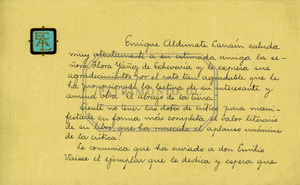 Enrique Aldunate Larraín saluda
muy atentamente a su estimada amiga la se-
ñora Flora Yáñez de Echeverría y le expresa sus
agradecimientos por el rato tan agradable que le
ha proporcionado la lectura de su interesante y
amena obra abajo de la tierra.
Siente no tener las dotes de crítico para mani-
festarle en forma más completa el valor literario
de su libro que ha merecido el aplauso unánime
de la crítica.
Le comunica que ha enviado a don Emilio
Vaisse el ejemplar que le dedica y espera que